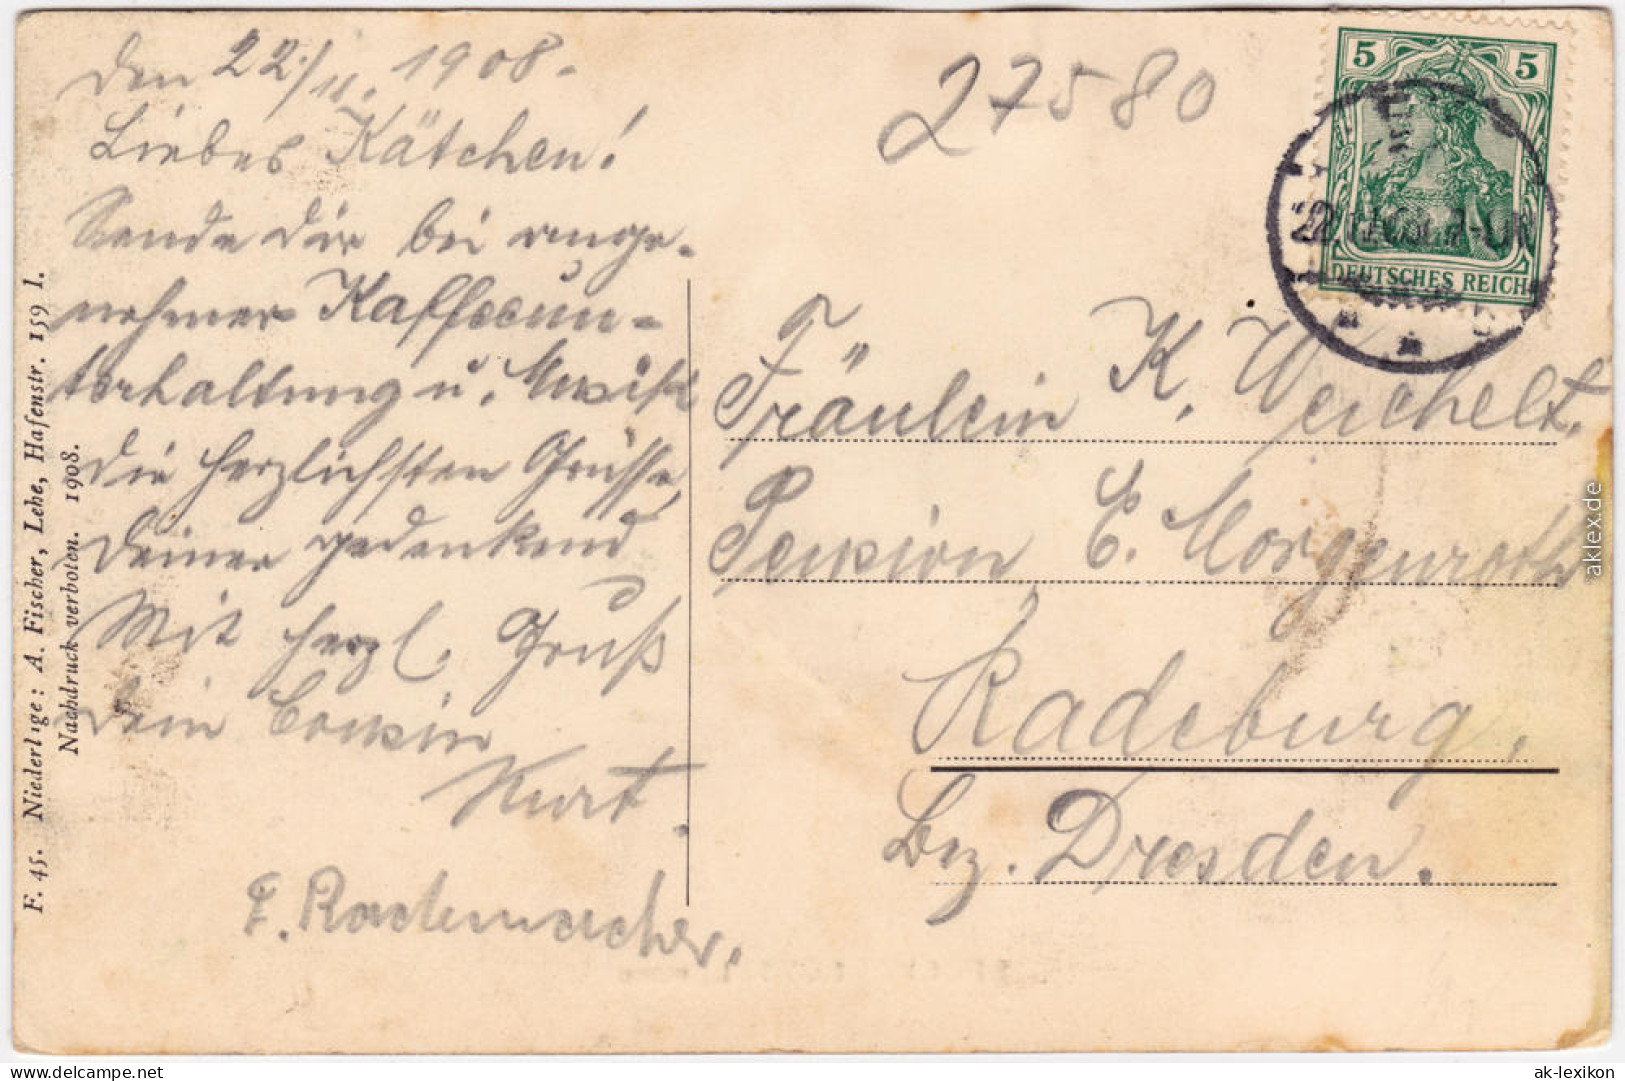 den 22./11. 1908.
Liebes Kätchen!
Sende Dir bei ange-
nehmer Kaffeeun-
terhaltung u. Musik
die herzlichsten Grüsse,
Deiner gedenkend
Mit herzl. Gruß
Dein Cousin
Kurt.
E. Rademacher.
27580
5 5
DEUTSCHES REICH
Fräulein K. Weichelt.
Pension E. Morgenroth
Radeburg,
Bz. Dresden.
F. 45. Niederlige: A. Fischer, Lehe, Hafenstr. 159 I.
Nachdruck verboten. 1908.
aklex.de
© ak-ansichtskarten.de
ak-lexikon